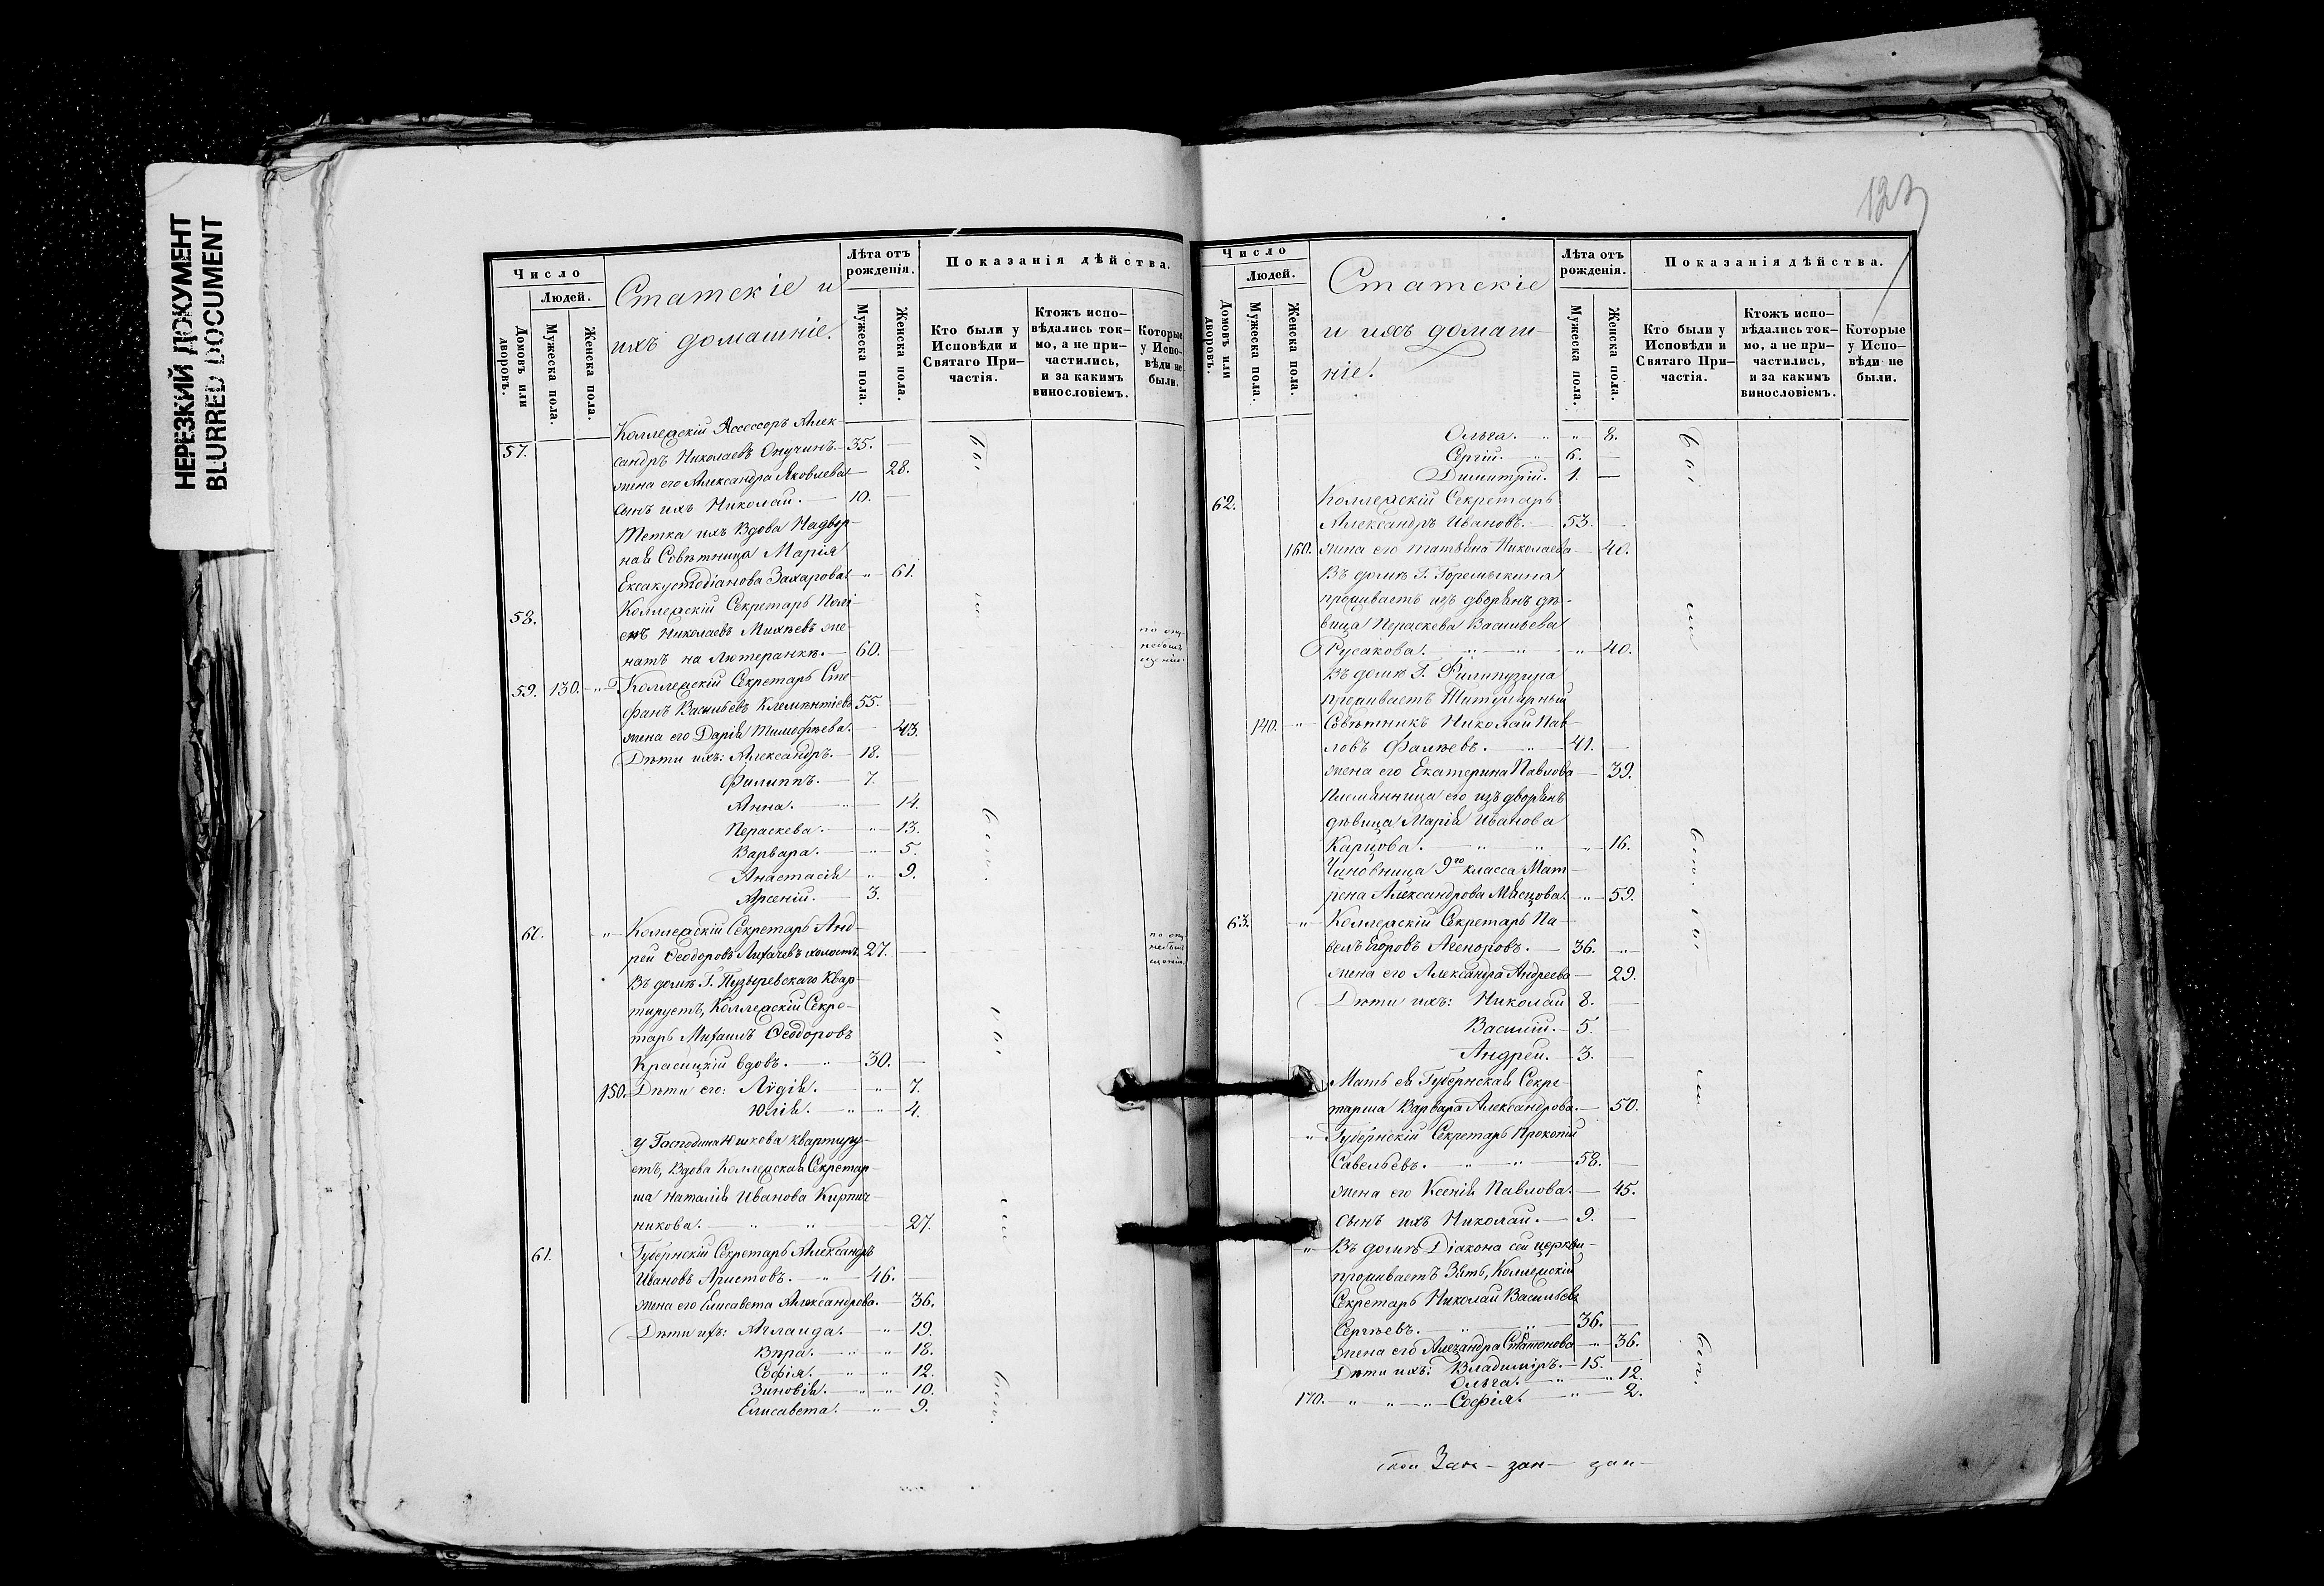 НЕРЕЗКИЙ ДОКУМЕНТ
BLURRED DOCUMENT
Число
Людей.
Домовъ или дворовъ.
Мужеска пола.
Женска пола.
Статскіе и
ихъ домашніе.
Лѣта отъ рожденія.
Мужеска пола.
Женска пола.
Показанія дѣйства.
Кто были у Исповѣди и Святаго При-частія.
Ктожъ испо-вѣдались ток-мо, а не при-частились, и за какимъ винословіемъ.
Которые у Испо-вѣди не были.
57. Коллежскій Ассессоръ Алек-
сандръ Николаевъ Онучинъ. 35.
жена его Александра Яковлева 28.
сынъ ихъ Николай. 10.
Тетка ихъ Вдова Надвор-
ная Совѣтница Марія
Ексакустодіанова Захарова. " 61.
58. Коллежскій Секретарь
Николаевъ Михѣевъ же-
натъ на Лютеранкѣ. 60.
59. 130. " Коллежскій Секретарь Сте-
фанъ Васильевъ Клементіевъ 55.
жена его Дарія Тимофѣева. 43.
Дѣти ихъ: Александръ. 18.
Филиппъ. 7.
Анна. 14.
Пераскева. " 13.
Варвара. " 5.
Анастасія " 9.
Арсеній. 3.
" Коллежскій Секретарь Анд-
рей Ѳеодоровъ Лихачевъ холостъ. 27.
Въ домѣ Г. Пузыревскаго Квар-
тируетъ, Коллежскій Секре-
тарь Михаилъ Ѳеодоровъ
Красицкій вдовъ. " 30.
150. Дѣти его: Лѵдія. " 7.
Юлія. " " 4.
У Господина Юшкова квартиру-
етъ, Вдова Коллежская Секретар-
ша Наталія Иванова Кирпич-
никова. " " 27.
61. Губернскій Секретарь Александръ
Ивановъ Аристовъ. " 46.
жена его Елисавета Александрова. 36.
Дѣти ихъ: Аглаида. " 19.
Вѣра. " " 18.
Софія. " " 12.
Зиновія. " " 10.
Елисавета. " 9.
123
Число
Людей.
Домовъ или дворовъ.
Мужеска пола.
Женска пола.
Статскіе
и ихъ домаш-
ніе.
Лѣта отъ рожденія.
Мужеска пола.
Женска пола.
Показанія дѣйства.
Кто были у Исповѣди и Святаго При-частія.
Ктожъ испо-вѣдались ток-мо, а не при-частились, и за какимъ винословіемъ.
Которые у Испо-вѣди не были.
Ольга. " " 8.
Сергій. " 6.
Димитрій. 1.
62. Коллежскій Секретарь
Александръ Ивановъ. 53.
160. жена его Татьяна Николаева 40.
Въ домѣ Г. Горемыкина
проживаетъ изъ дворянъ дѣ-
вица Пераскева Васильева
Русакова. " " " 40.
Въ домѣ Г.
проживаетъ Титулярный
140. " Совѣтникъ Николай Пав-
ловъ Фалѣевъ. " 41.
жена его Екатерина Павлова 39.
Племянница его изъ дворянъ
дѣвица Марія Иванова
Карцова. " " " 16.
Чиновница 9го класса Мат-
рена Александрова Мясцова. " 59.
63. " Коллежскій Секретарь Па-
велъ Егоровъ Агеноровъ. 36. "
жена его Александра Андреева 29.
Дѣти ихъ: Николай 8.
Василій. 5.
Андрей. 3.
Мать ея Губернская Секре-
тарша Варвара Александрова. 50.
" Губернскій Секретарь Прокопій
Савельевъ. " " 58.
жена его Ксенія Павлова. 45.
сынъ ихъ Николай. 9.
" Въ домѣ Діакона сей церкви-
проживаетъ Зять, Коллежскій
Секретарь Николай Васильевъ
Сергѣевъ. " " 36.
жена его Александра " 36.
Дѣти ихъ: Владиміръ. 15.
Ольга. " " 12.
170. " " " Софія. " 2.